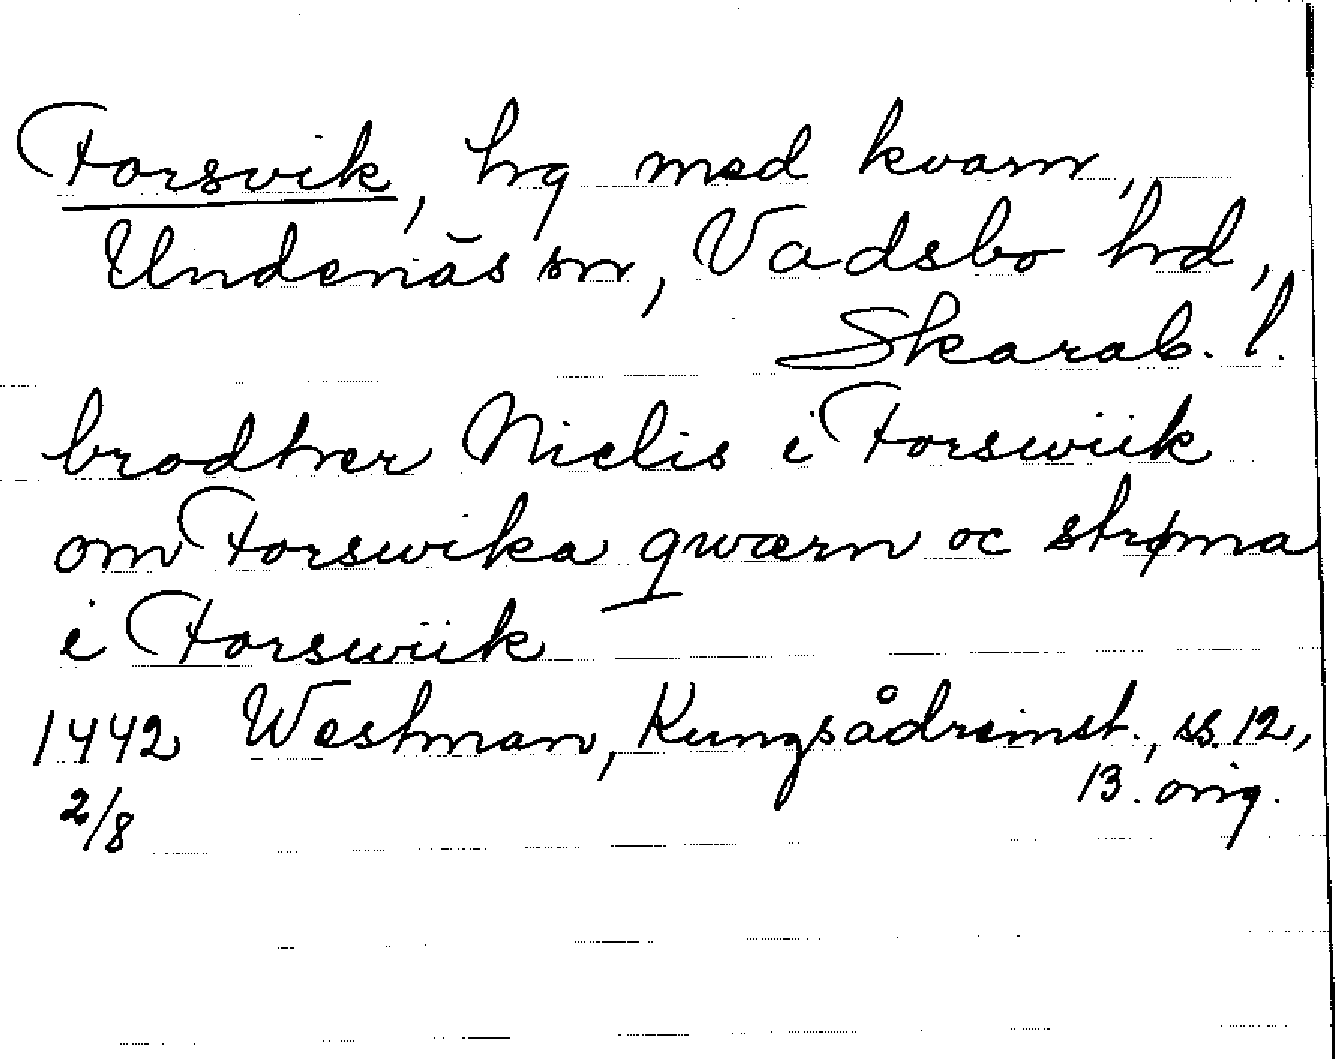 Forsvik, hg med kvarn,
Undenäs sn, Vadsbo hd,
Skarab. l.
brodher Nielis i Forswiik
om Forswika qwærn oc strøma
i Forswiik
1442 Westman, Kungsådreinst., ss. 12,
2/8 13. orig.